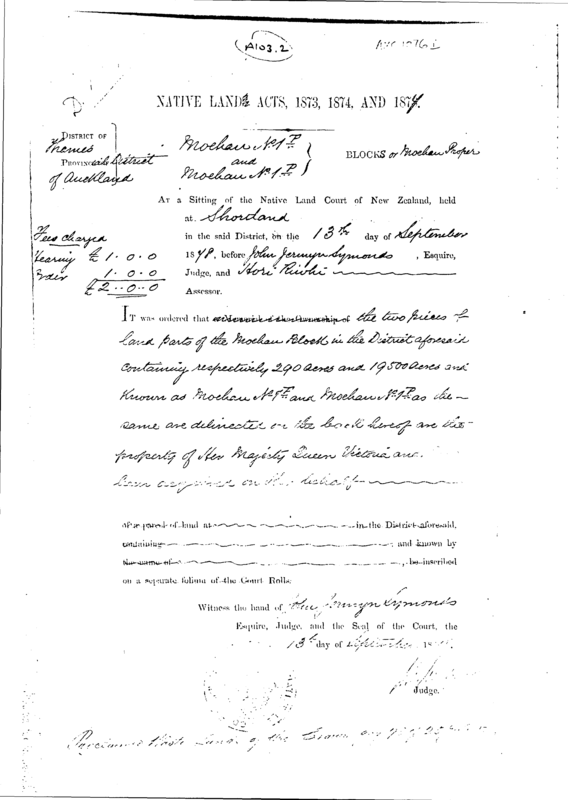 A103.2
NATIVE LAND ACTS, 1873, 1874, AND 1878.
DISTRICT OF
Thames
PROVINcial District
of Auckland
Moehau No 1
and
Moehau No 1
BLOCKS or Moehau Proper
AT a Sitting of the Native Land Court of New Zealand, held
at Shortland
in the said District, on the 13th day of September
1878, before John Jermyn Symonds, Esquire,
Judge, and Hori
Assessor.
Fees charged
Hearing £1.0.0
Order 1.0.0
£2.0.0
IT was ordered that the two pieces of
land parts of the Moehau Block in the District aforesaid
containing respectively 290 acres and 19500 acres and
known as Moehau No 1 and Moehau No 1 as the
same are delineated on the back hereof are the
property of Her Majesty Queen Victoria
acquired on behalf
or a parcel of land at in the District aforesaid,
containing and known by
the name of , be inscribed
on a separate folium of the Court Rolls.
Witness the hand of John Jermyn Symonds
Esquire, Judge, and the Seal of the Court, the
13th day of September 18
Judge.
Proclaimed Waste Lands of the Crown